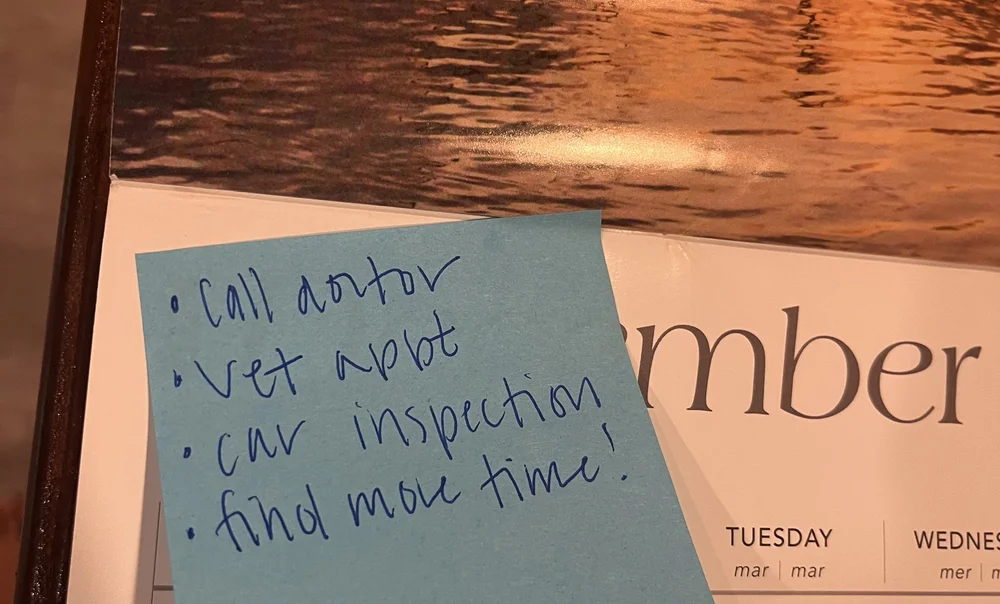 • call doctor
• vet appt
• car inspection
• find more time!
ember
TUESDAY
mar | mar
WEDNES
mer | m